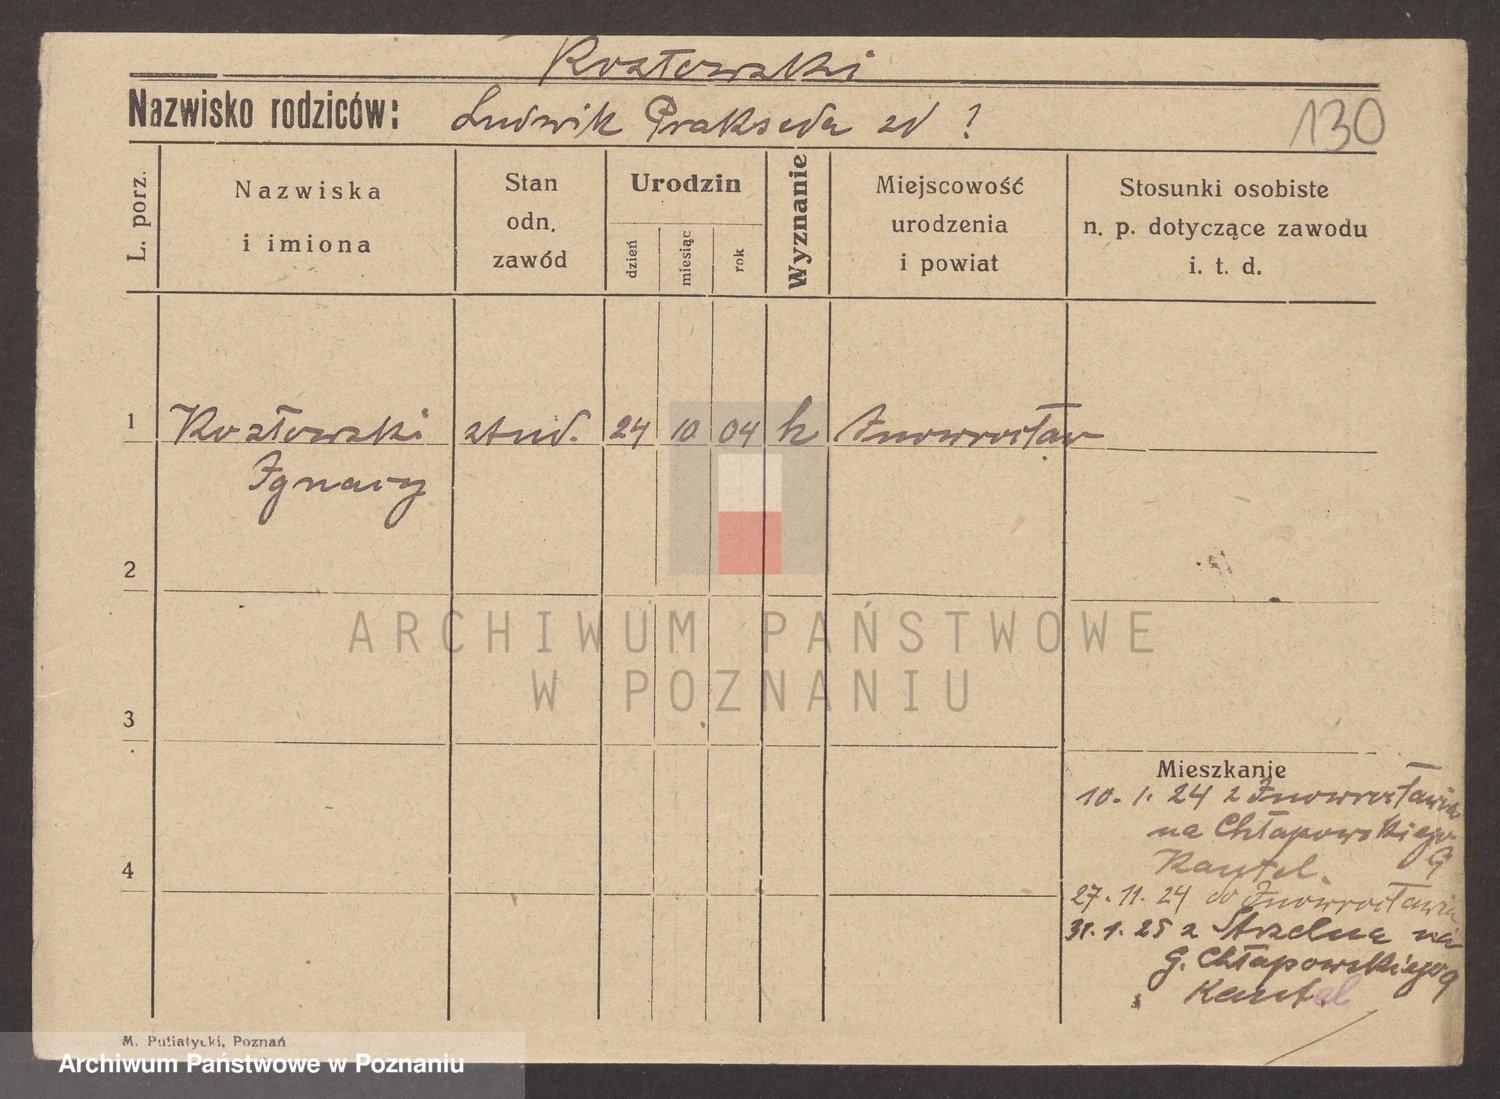 Kozłowski
Nazwisko rodziców: Ludwik Prakseda zd ?
130
L. porz.
Nazwiska
i imiona
Stan
odn.
zawód
Urodzin
dzień
miesiąc
rok
Wyznanie
Miejscowość
urodzenia
i powiat
Stosunki osobiste
n. p. dotyczące zawodu
i. t. d.
1 Kozłowski stud. 24 10 04 k Inowrocław
Ignacy
2
ARCHIWUM PAŃSTWOWE
W POZNANIU
3
Mieszkanie
10. 1. 24 z Inowrocławia
na Chłapowskiego
9
4
27. 11. 24 do Inowrocławia
31. 1. 25 z Strzelna na
G. Chłapowskiego 9
M. Putiatycki, Poznań
Archiwum Państwowe w Poznaniu